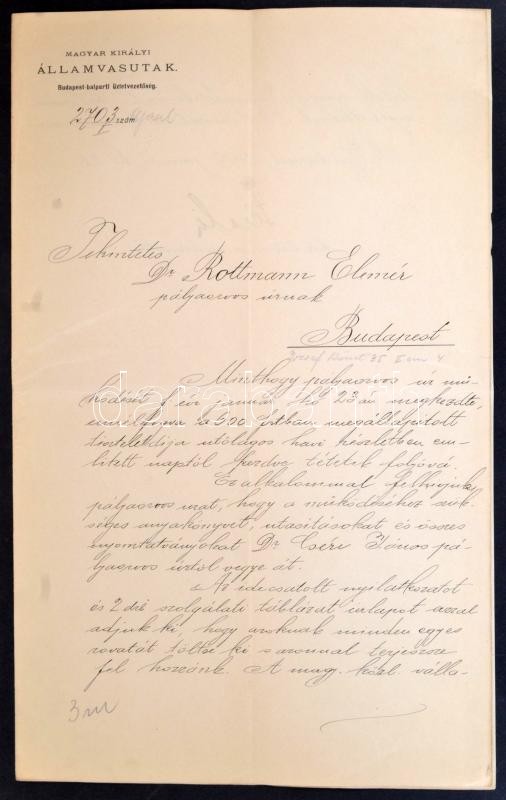 MAGYAR KIRÁLYI
ÁLLAMVASUTAK.
Budapest-balparti üzletvezetőség.
2703 szám
I
Tekintetes
Dr. Rottmann Elemér
pályaorvos úrnak
Budapest
József körút 35
Minthogy pályaorvos úr mű-
ködését f. évi január hó 23 án megkezdte,
ennélfogva a 300 frtban megállapított
tiszteletdíja utólagos havi részletben em-
lített naptól kezdve tétetek folyóvá.
Ez alkalommal felhívjuk
pályaorvos urat, hogy a működéséhez szük-
séges anyakönyvet, utasításokat és összes
nyomtatványokat Dr Cséri János pá-
lyaorvos úrtól vegye át.
Az idecsatolt nyilatkozatot
és 2 drb szolgálati táblázat űrlapot azzal
adjuk ki, hogy azoknak minden egyes
rovatát töltse ki s azonnal terjessze
fel hozzánk. A mag. közl. válla-
darabanth